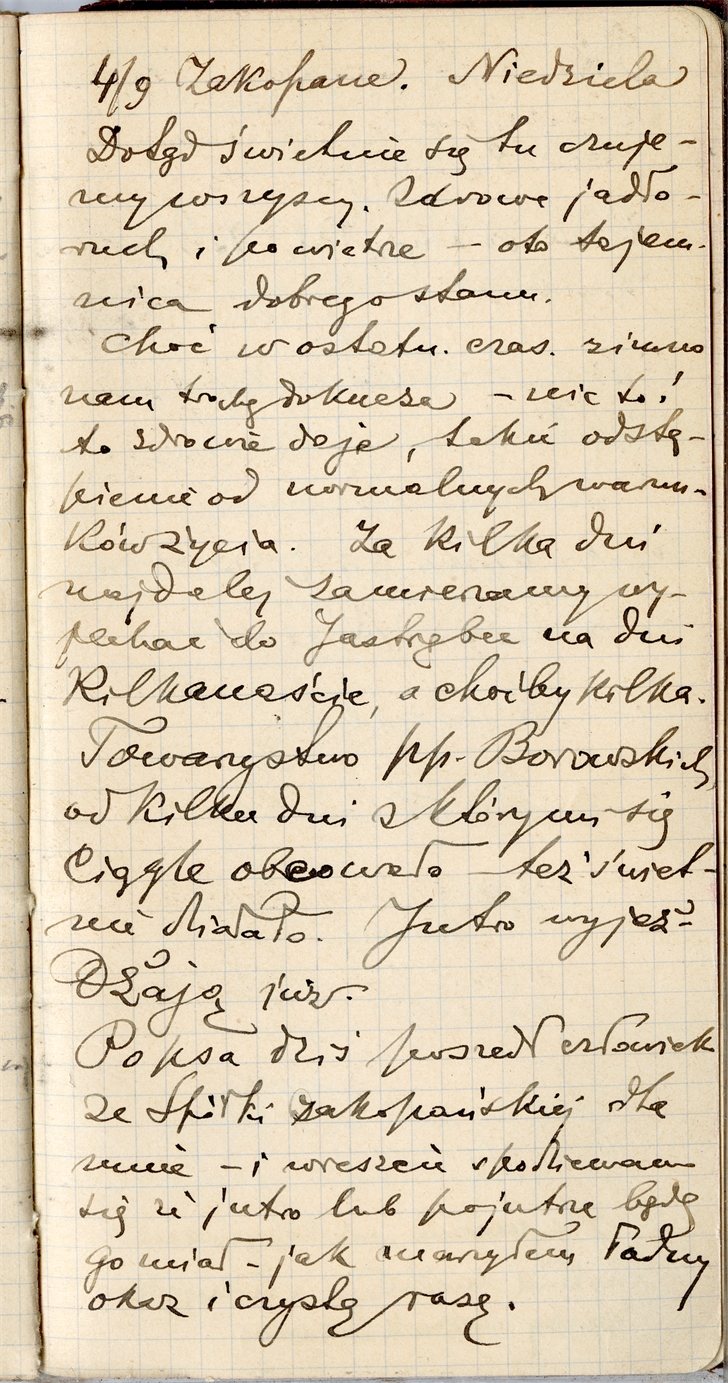 4/9 Zakopane. Niedziela
Dotąd świetnie się tu czuje-
my wszyscy. Zdrowe jadło -
ruch i powietrze – oto tajem-
nica dobrego stanu.
Choć w ostatn. czas. zimno
nam trochę dokucza – nic to!
to zdrowie daje, takie odstą-
pienie od normalnych warun-
ków życia. Za kilka dni
najdalej zamierzamy wy-
jechać do Jastrzębca na dni
kilkanaście, a choćby kilka.
Towarzystwo pp. Borowskich
od kilku dni z którymi się
ciągle obcowało też świet-
nie działało. Jutro wyjeż-
dżają już.
Po psa dziś poszedł człowiek
ze Spółki zakopańskiej dla
mnie – i wreszcie spodziewam
się że jutro lub pojutrze będę
go miał – jak marzyłem ładny
okaz i czystą rasę.